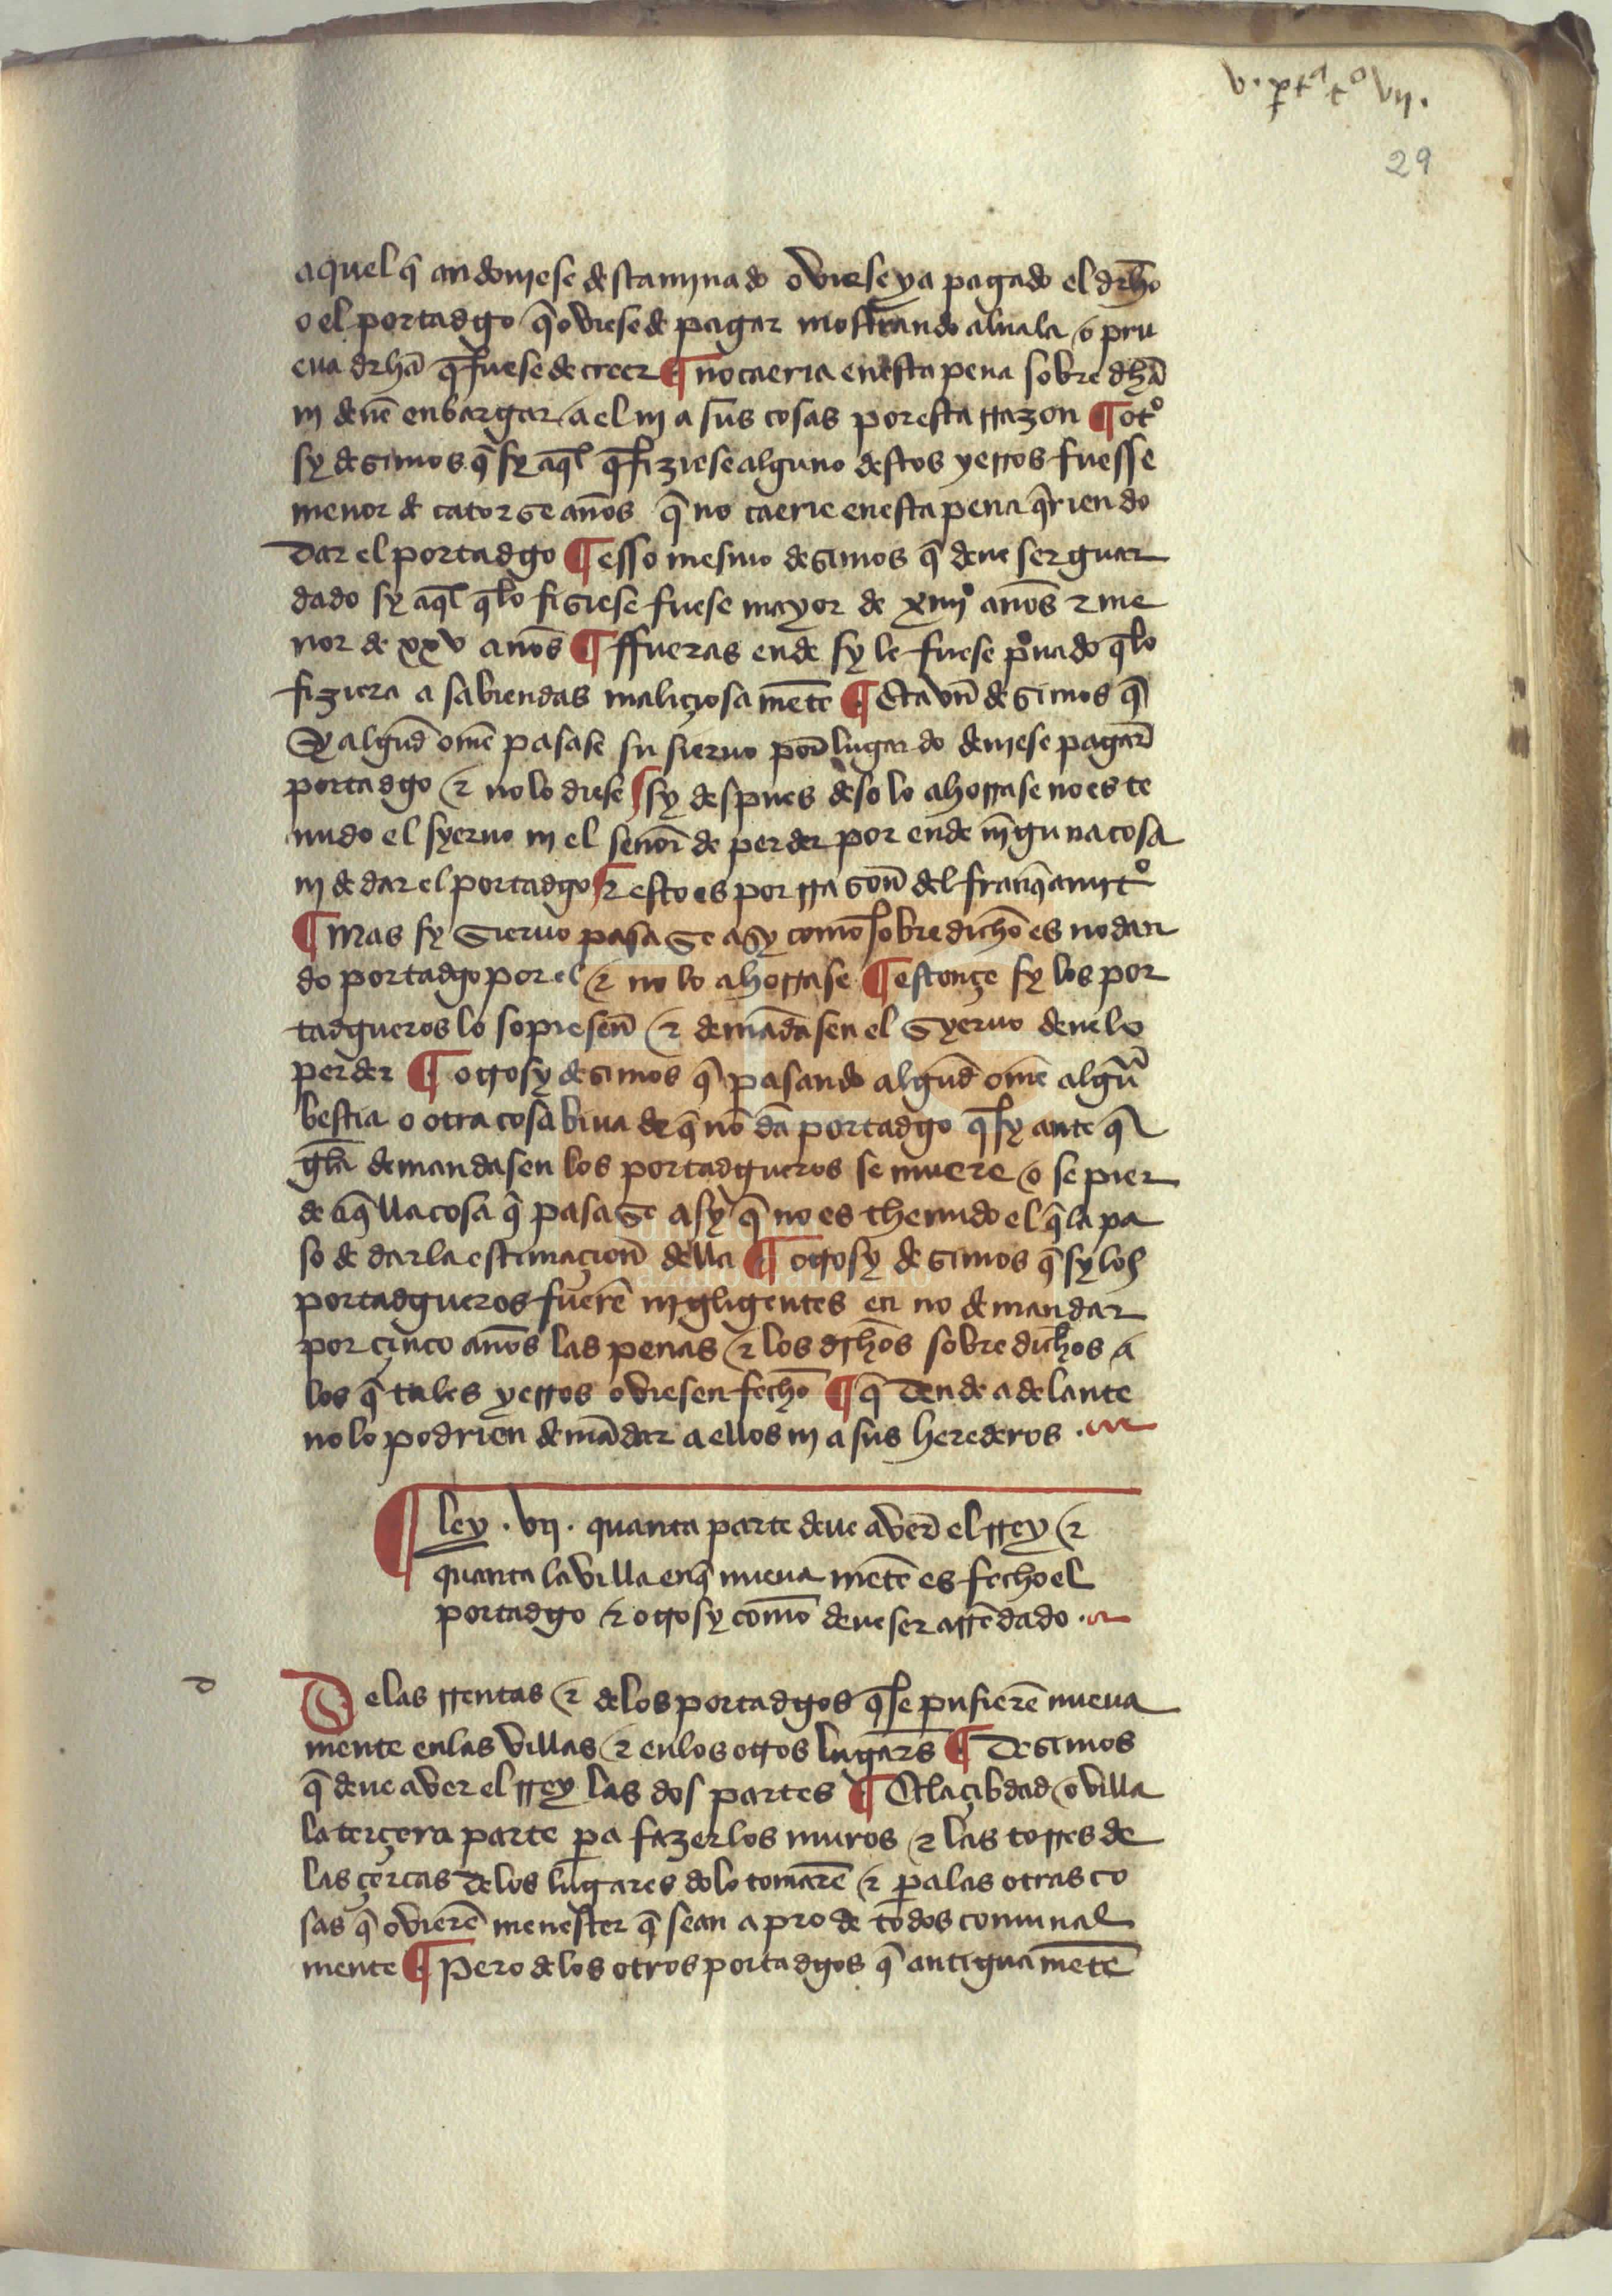 v. ꝑtᵃ tᵒ vij.
29
aquel q̄ andouiese destaminado ouiese ya pagado el drh̄o
o el portadgo q̄ ouiese de pagar mostrando aluala o pru
eua drh̄a q̄ fuese de creer ¶ no caeria en esta pena sobre dh̄a
nj deuē enbargar a el nj a sus cosas por esta rrazon ¶ otº
sy desimos q̄ sy aq̄l q̄ fiziese alguno destos yerros fuesse
menor de catorse años q̄ no caerie en esta pena q̄riendo
dar el portadgo ¶ esso mesmo desimos q̄ deue ser guar
dado sy aq̄l q̄ lo fisiese fuese mayor de xiiijº años ⁊ me
nor de xxv años ¶ ffueras ende sy le fuese pͦuado q̄ lo
fiziera a sabiendas maliçiosa mēte ¶ Eta vn̄ desimos q̄
Sy algud̄ om̄e pasase su sieruo por̄ lugar do deuiese pagar̄
portadgo ⁊ no lo diese ¶ sy despues deso lo ahorrase no es te
nudo el syeruo nj el señor de perder por ende nīguna cosa
nj de dar el portadgo ¶ ⁊ esto es por rrason̄ del franq̄amjtº
¶ Mas sy sieruo pasase asy com̄o sobre dicho es no dan
do portadgo por el ⁊ no lo ahorrase ¶ estonçe sy los por
tadgueros lo sopiesen̄ ⁊ demādasen el syeruo deuelo
perder ¶ otrosy desimos q̄ pasando algud̄ om̄e algūᵃ
bestia o otra cosa biua de q̄ nō dā portadgo q̄ sy ante q̄
gela demandasen los portadgueros se muere o se pier
de aq̄lla cosa q̄ pasase asy q̄ no es thenudo el q̄ la pa
so de dar la estimaçion̄ della ¶ otrosy desimos q̄ sy los
portadgueros fuerē njgligentes en no demandar
por çinco años las penas ⁊ los drh̄os sobre dichos a
los q̄ tales yerros ouiesen fecho ¶ q̄ dende adelante
no lo podrien demādar a ellos nj a sus herederos .
¶ ley . vij . quanta parte deue auer̄ el rrey ⁊
quanta la villa en q̄ nueua mēte es fecho el
portadgo ⁊ otrosy com̄o deue ser arrēdado .
d
De las rrentas ⁊ de los portadgos q̄ se pusierē nueua
mente en las villas ⁊ en los otros lugar̄s ¶ desimos
q̄ deue auer el rrey las dos partes ¶ Et la çibdad o villa
la terçera parte ꝑa fazer los muros ⁊ las torres de
las çercas de los lugares do lo tomarē ⁊ ꝑa las otras co
sas q̄ ouierē menester q̄ sean a pro de todos comunal
mente ¶ Pero de los otros portadgos q̄ antigua mēte